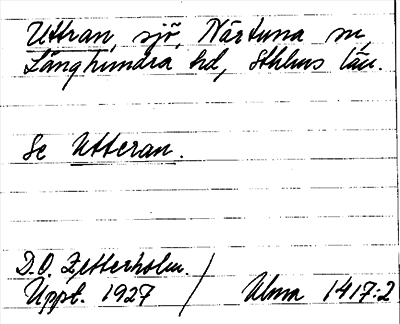 Uttran, sjö, Närtuna sn,
Långhundra hd, Sthlms län.
Se Utteran.
D.O. Zetterholm.
Uppt. 1927 / Ulma 1417:2